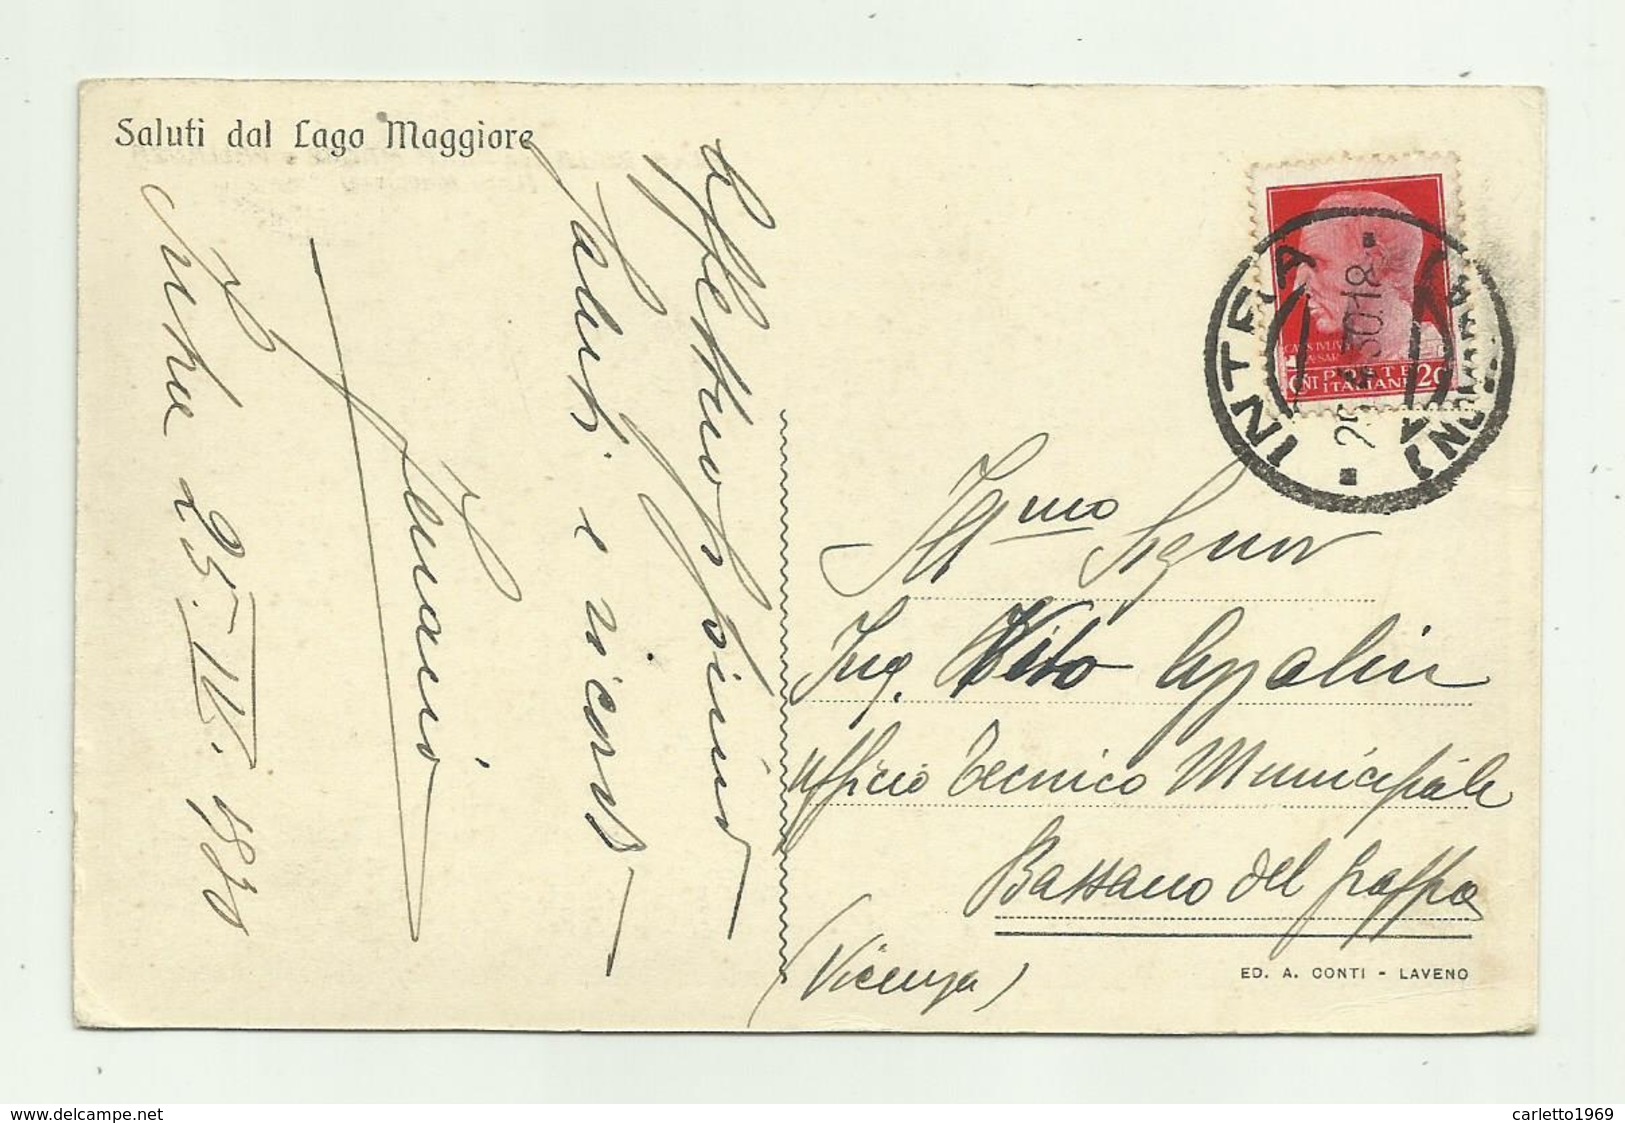 Saluti dal Lago Maggiore
Intra 25.IV.1930
Affettuosissimi
saluti e ricordi
Ill mo Signor
Ing. Vito Azzalin
Ufficio Tecnico Municipale
Bassano del Grappa
(Vicenza)
ED. A. CONTI - LAVENO
INTRA
30.18
(NOVARA)
CAIVS IVLIVS
CAESAR
POSTE
ITALIANE
CENT 20
www.delcampe.net
carletto1969